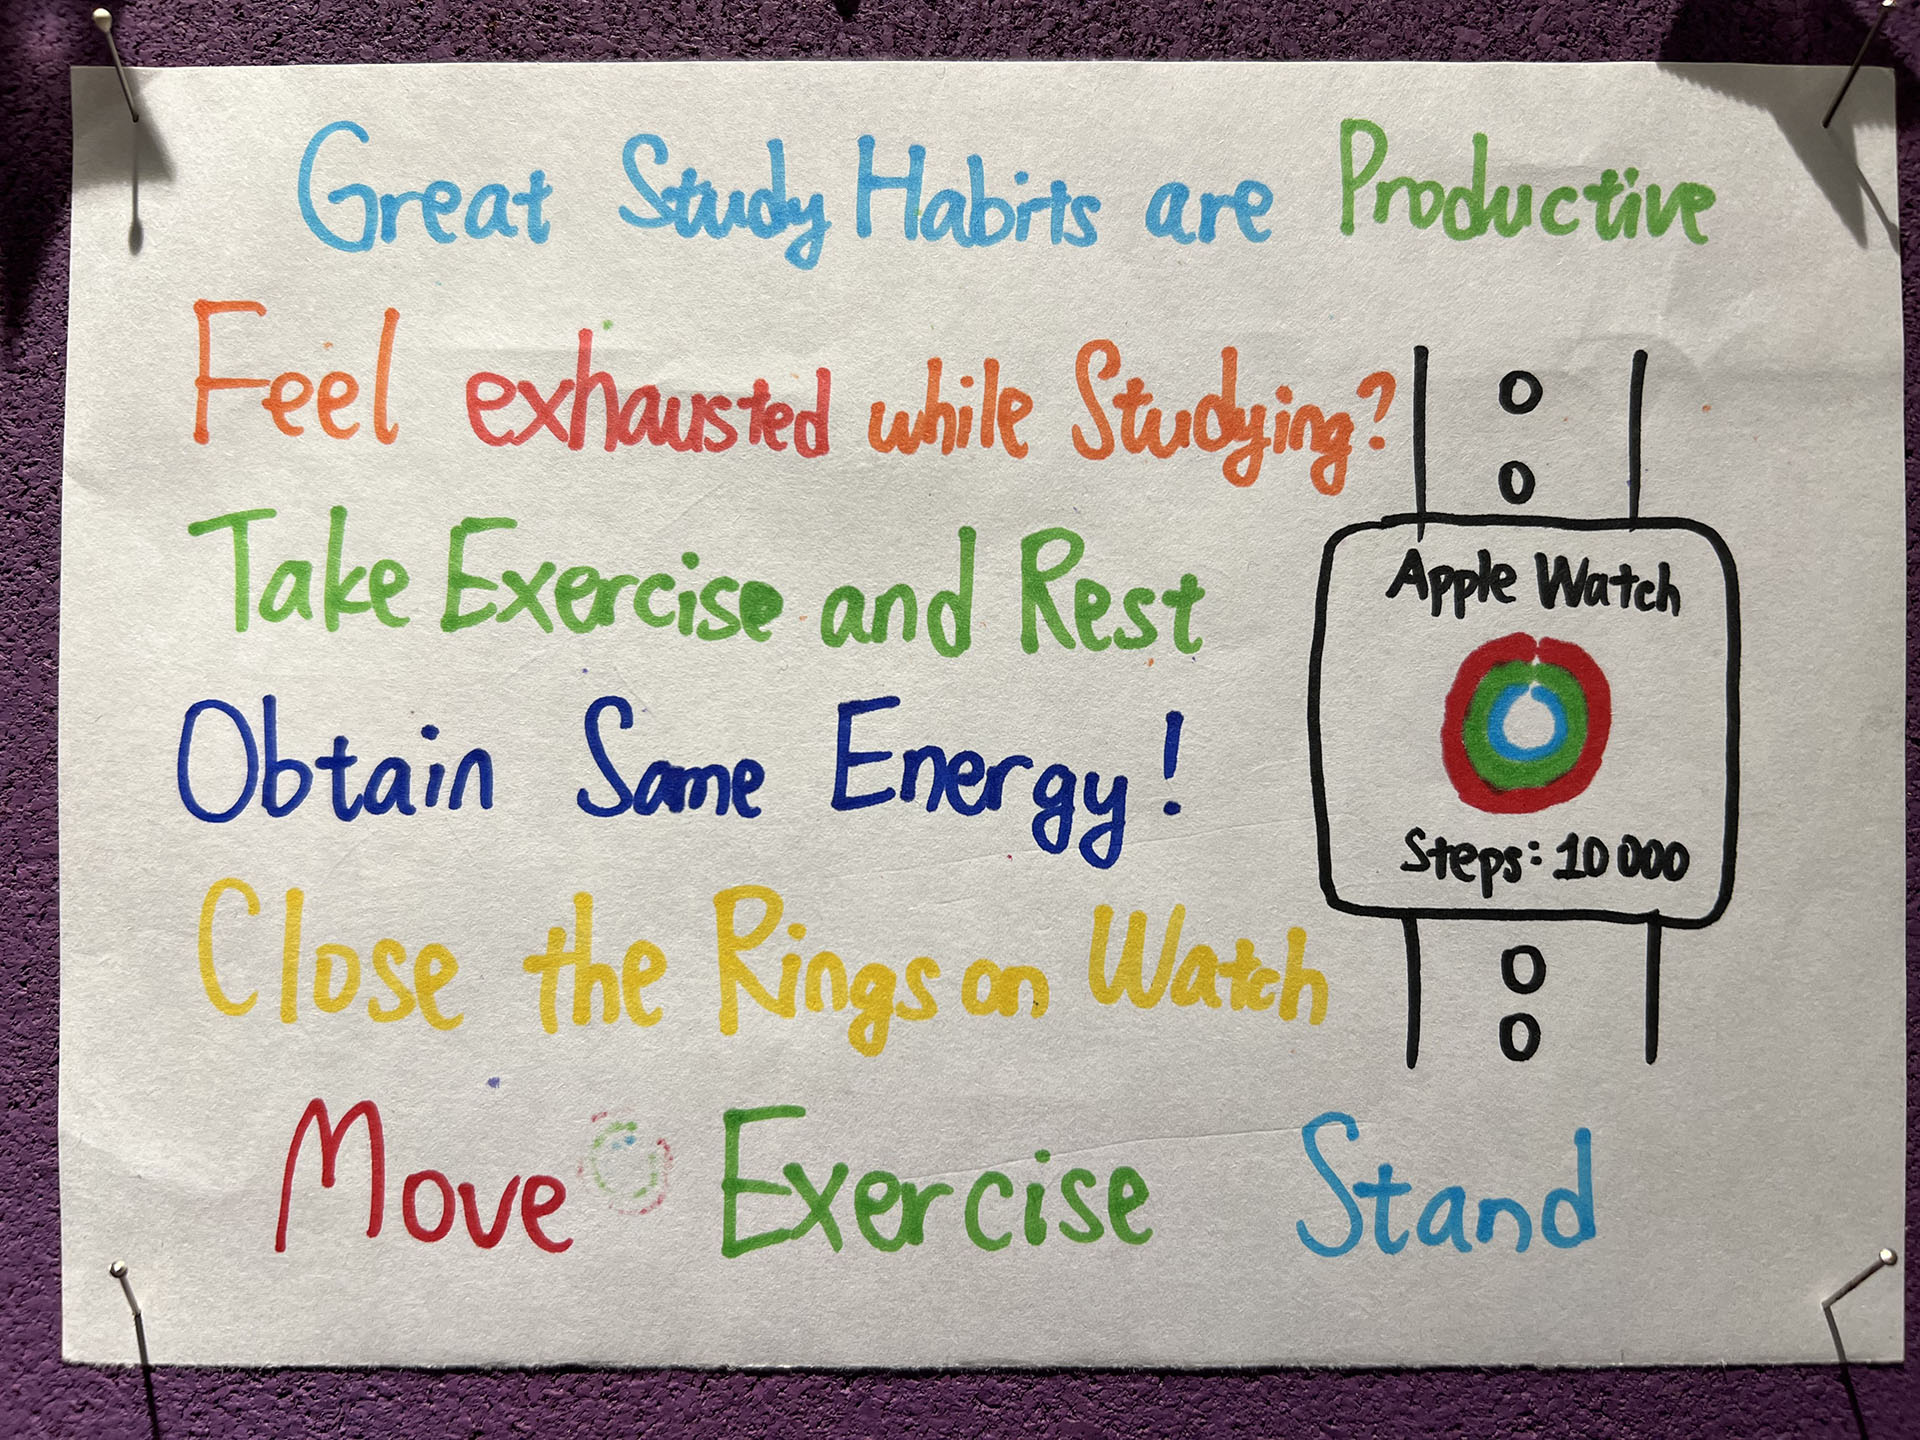 Great Study Habits are Productive
Feel exhausted while Studying?
Take Exercise and Rest
Obtain Some Energy!
Close the Rings on Watch
Move Exercise Stand
Apple Watch
Steps: 10 000